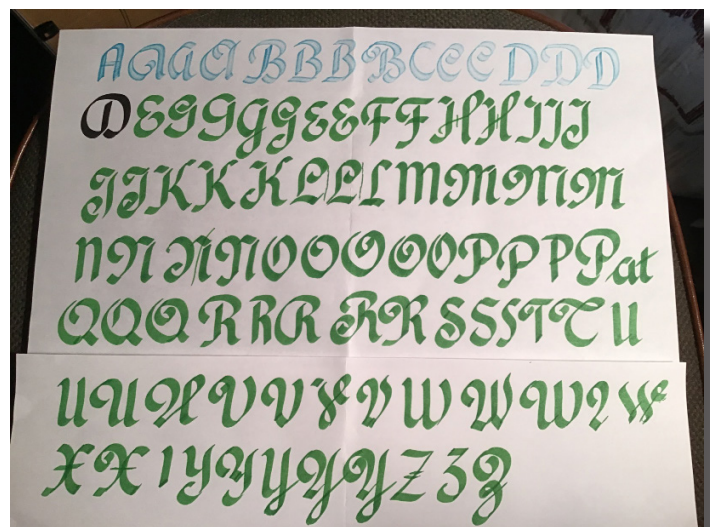 A A A A B B B B C C C D D D
D E G G G G E E F F H H I I J
J J K K K L L L M M M M
N N N N O O O O O P P P Pat
Q Q Q R R R R R S S S T T U
U U U V V V V W W W W
X X Y Y Y Y Y Z Z Z